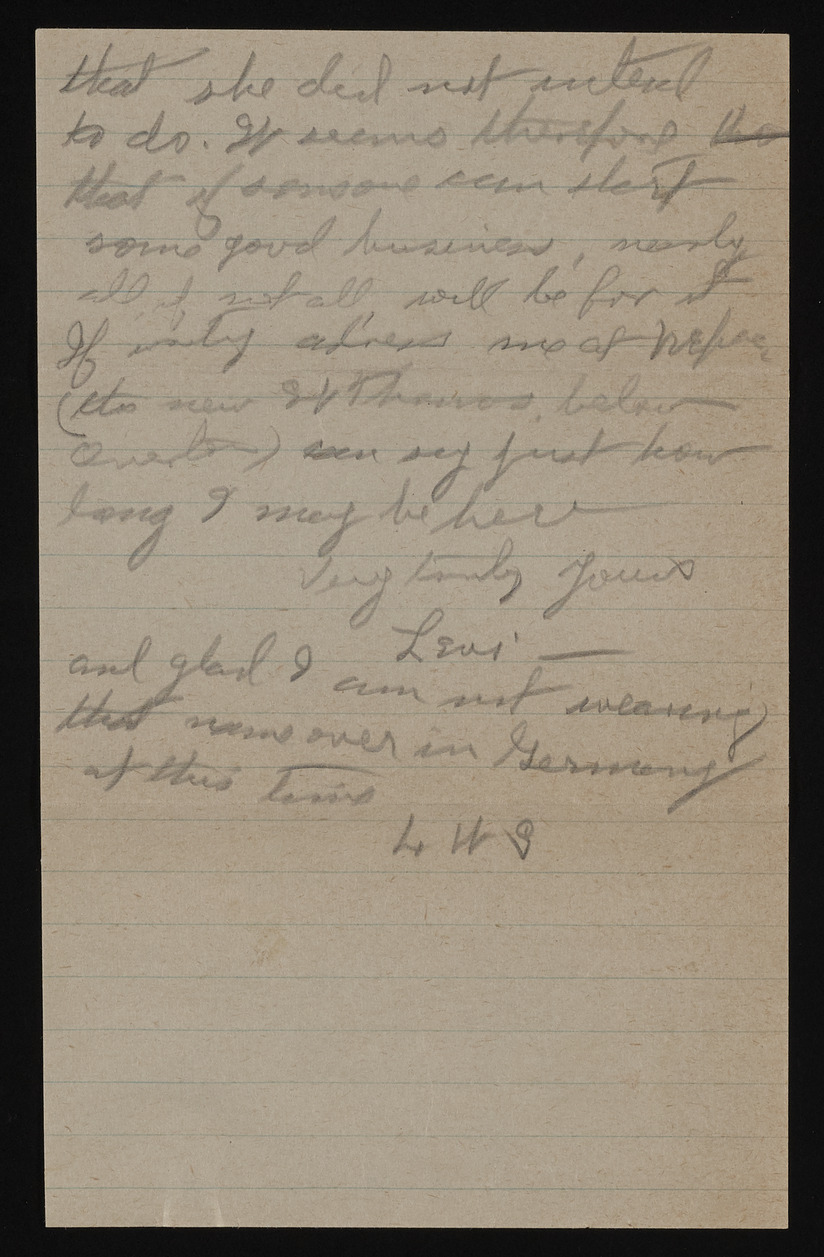 that she did not intend
to do. It seems therefore
that if someone can start
some good business, nearly
all if not all, will be for it
If adress me at
(the new St Thomas, below
Overton) can say just how
long I may be here
Very truly yours
Levi —
and glad I am not wearing
that name over in Germany
at this time
L W S